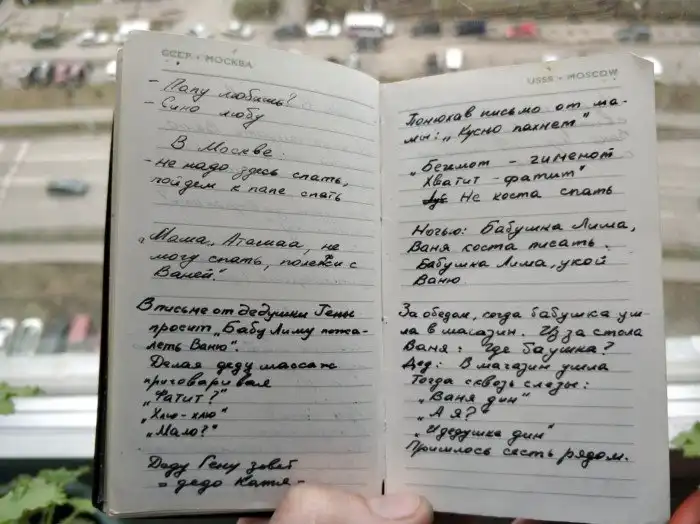 СССР • МОСКВА
- Папу любишь?
- Сино любу
В Москве:
- не надо здесь спать,
пойдем к папе спать
"Мама, Аташаа, не
могу спать, полежи с
Ваней".
В письме от дедушки Гены
просит "Бабу Лиму пожа-
леть Ваню".
Делая деду массаж
приговаривал
"Фатит?"
"Хлю-хлю"
"Мало?"
Деду Гену зовет
- дедо Катя -
USSR • MOSCOW
Понюхав письмо от ма-
мы: "Кусно пахнет"
"Бегимот - гименот
Хватит - фатит"
Не коста спать
Ночью: Бабушка Лима,
Ваня коста писать.
Бабушка Лима, укой
Ваню.
За обедом, когда бабушка уш-
ла в магазин. Из за стола
Ваня: Где баушка?
Дед: В магазин ушла
Тогда сквозь слезы:
"Ваня дин"
"А я?"
"И дедушка дин"
Пришлось сесть рядом.